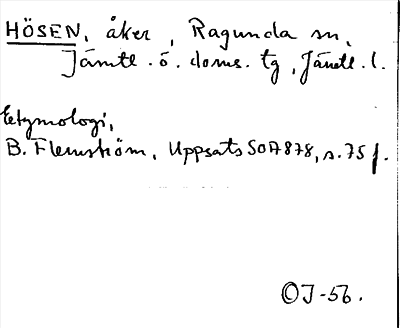 HÖSEN, åker, Ragunda sn,
Jämtl. ö. doms. tg, Jämtl. l.
Etymologi,
B. Flemström, Uppsats SOA 878, s. 75 f.
OJ-56.